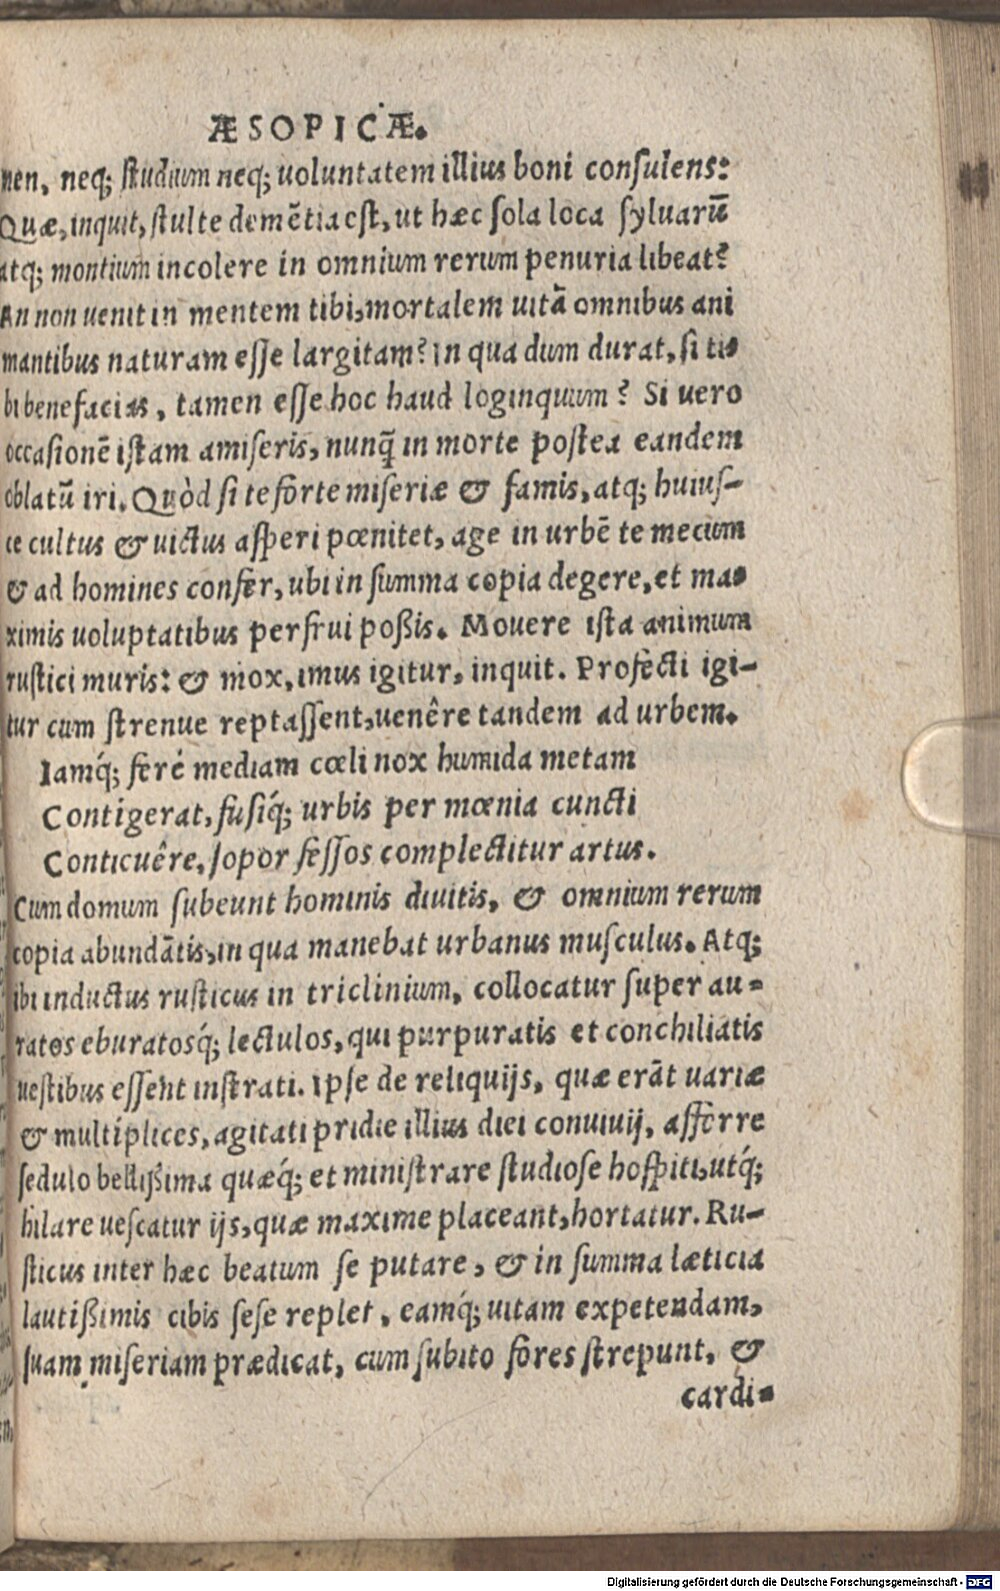 ÆSOPICÆ.
nen, neq; studium neq; uoluntatem illius boni consulens:
Quæ, inquit, stulte demẽtia est, ut hæc sola loca syluarũ
atq; montium incolere in omnium rerum penuria libeat?
An non uenit in mentem tibi, mortalem uitã omnibus ani
mantibus naturam esse largitam? in qua dum durat, si ti-
bi benefacias, tamen esse hoc haud loginquum? Si uero
occasionẽ istam amiseris, nunq̃ in morte postea eandem
oblatũ iri. Quòd si te forte miseriæ & famis, atq; huius-
ce cultus & uictus asperi pœnitet, age in urbẽ te mecum
& ad homines confer, ubi in summa copia degere, et ma-
ximis uoluptatibus perfrui poßis. Mouere ista animum
rustici muris: & mox, imus igitur, inquit. Profecti igi-
tur cum strenue reptassent, uenêre tandem ad urbem.
Iamq́; ferè mediam cœli nox humida metam
Contigerat, fusiq́; urbis per mœnia cuncti
Conticuêre, sopor fessos complectitur artus.
Cum domum subeunt hominis diuitis, & omnium rerum
copia abundãtis, in qua manebat urbanus musculus. Atq;
ibi inductus rusticus in triclinium, collocatur super au-
ratos eburatosq́; lectulos, qui purpuratis et conchiliatis
uestibus essent instrati. Ipse de reliquijs, quæ erãt uariæ
& multiplices, agitati pridie illius diei conuiuij, afferre
sedulo bellißima quæq́; et ministrare studiose hospiti, utq́;
hilare uescatur ijs, quæ maxime placeant, hortatur. Ru-
sticus inter hæc beatum se putare, & in summa læticia
lautißimis cibis sese replet, eamq́; uitam expetendam,
suam miseriam prædicat, cum subito fores strepunt, &
cardi-
Digitalisierung gefördert durch die Deutsche Forschungsgemeinschaft - DFG